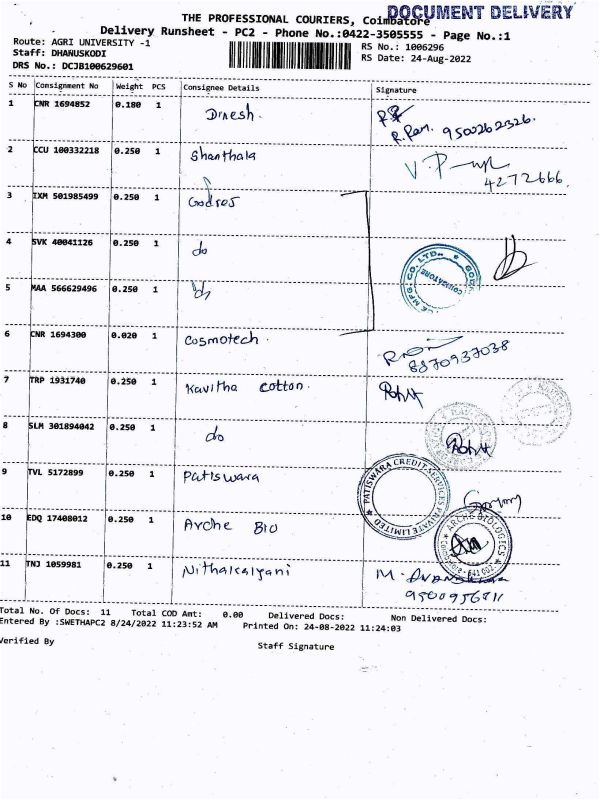 DOCUMENT DELIVERY
THE PROFESSIONAL COURIERS, Coimbatore
Delivery Runsheet - PC2 - Phone No.:0422-3505555 - Page No.:1
Route: AGRI UNIVERSITY -1
RS No.: 1006296
Staff: DHANUSKODI
RS Date: 24-Aug-2022
DRS No.: DCJB100629601
S No Consignment No Weight PCS Consignee Details Signature
1 CNR 1694852 0.180 1 Dinesh.
R. Ram. 9500262326.
2 CCU 100332218 0.250 1 Shanthala
4272666.
3 IXM 501985499 0.250 1 Godrej
4 SVK 40041126 0.250 1 do
5 MAA 566629496 0.250 1 do
MFG. CO. LTD.
COIMBATORE
6 CNR 1694300 0.020 1 Cosmotech.
8870937038
7 TRP 1931740 0.250 1 Kavitha cotton.
Rohit
8 SLM 301894042 0.250 1 do
Rohit
9 TVL 5172899 0.250 1 Patiswara
PATISWARA CREDIT SERVICES PRIVATE LIMITED
10 EDQ 17408012 0.250 1 Arche Bio
ARCHE BIOLOGICS
11 TNJ 1059981 0.250 1 Nithakalyani
M.
Total No. Of Docs: 11 Total COD Amt: 0.00 Delivered Docs: Non Delivered Docs:
Entered By :SWETHAPC2 8/24/2022 11:23:52 AM Printed On: 24-08-2022 11:24:03
Verified By
Staff Signature